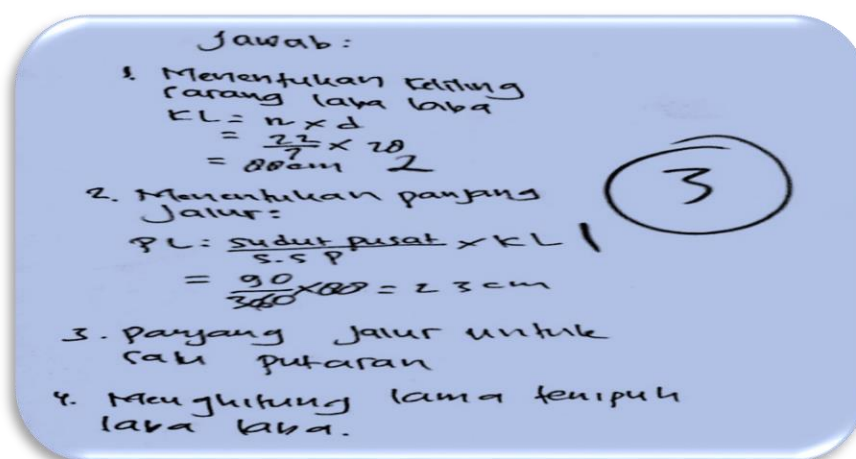 Jawab:
1. Menentukan keliling
sarang laba laba
KL = π x d
= 22/7 x 28
= 88 cm 2
3
2. Menentukan panjang
Jalur:
PL: sudut pusat/s.s P x KL 1
= 90/360 x 88 = 23 cm
3. panjang jalur untuk
satu putaran
4. Menghitung lama tempuh
laba laba.